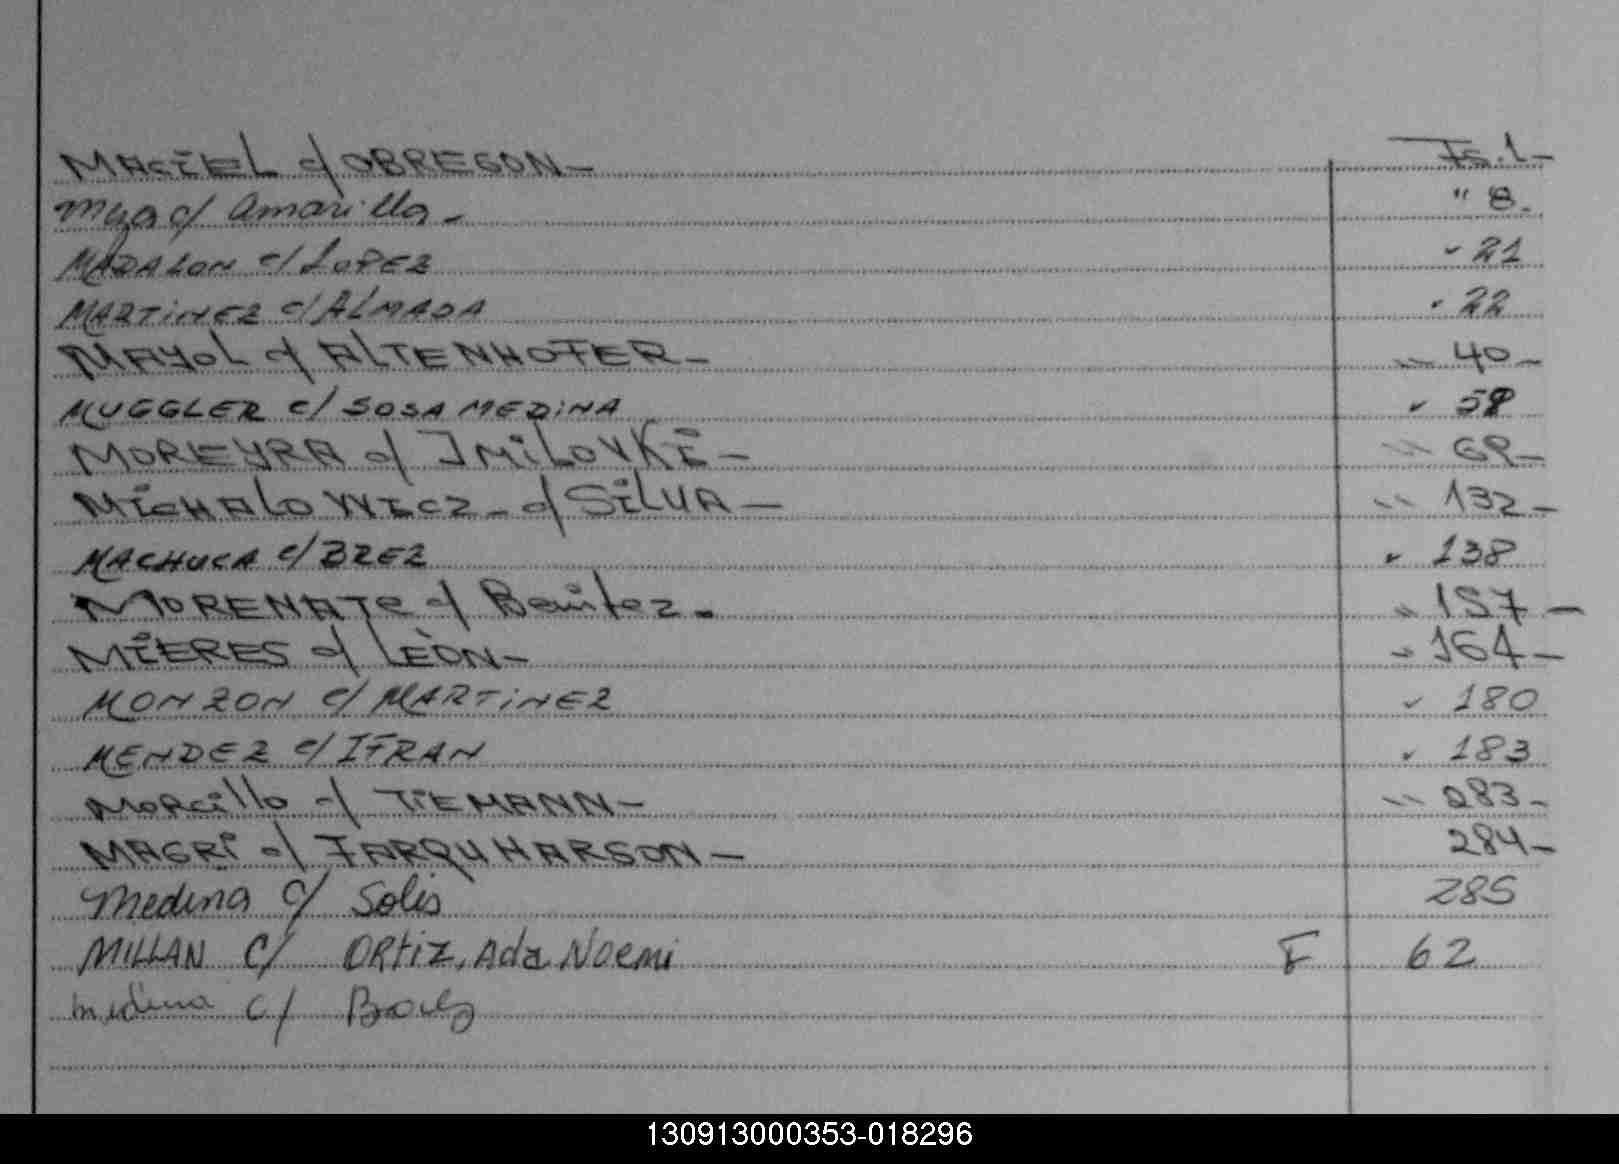 MACIEL c/ OBREGON- Fs. 1-
c/ Amarilla- " 8-
MADALON c/ LOPEZ " 21
MARTINEZ c/ ALMADA " 22
MAYOL c/ ALTENHOFER- " 40-
MUGGLER c/ SOSA MEDINA "
MOREYRA c/ -
MICHALOWICZ- c/ SILVA- " 132-
MACHUCA c/ " 138
c/ Benitez- " 157-
MIERES c/ LEÒN- " 164-
MONZON c/ MARTINEZ " 180
MENDEZ c/ IFRAN " 183
Morcillo c/ TIEMANN- " 283-
MAGRI c/ FARQUHARSON- 284-
Medina c/ Solis 285
MILLAN C/ ORTIZ, Ada Noemi F 62
Medina c/
130913000353-018296